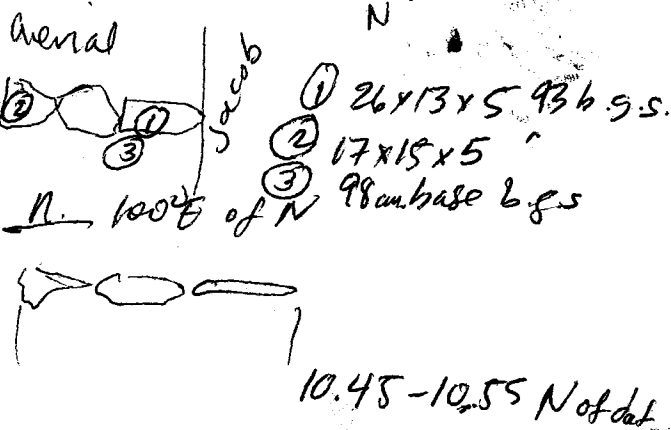 N
Aerial
Jacob
① 26 x 13 x 5 93 b.g.s.
② 17 x 15 x 5 "
③ 98 cm. base b.g.s
② ① ③
n. 100°E of N
10.45 - 10.55 N of dat